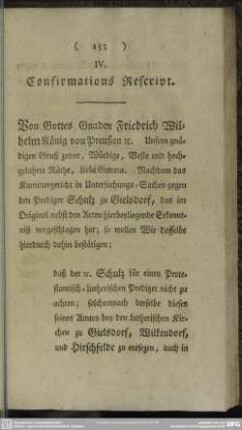 ( 152 )
IV.
Confirmations Rescript.
Von Gottes Gnaden Friedrich Wil-
helm König von Preußen ꝛc. Unsern gnä-
digen Gruß zuvor, Würdige, Veste und hoch-
gelahrte Räthe, Liebe Getreue. Nachdem das
Kammergericht in Untersuchungs-Sachen gegen
den Prediger Schulz zu Gielsdorf, das im
Original nebst den Acten hierbeyliegende Erkennt-
niß vorgeschlagen hat; so wollen Wir dasselbe
hierdurch dahin bestätigen:
daß der ꝛc. Schulz für einen Prote-
stantisch-lutherischen Prediger nicht zu
achten; solchemnach derselbe dieses
seines Amtes bey den lutherischen Kir-
chen zu Gielsdorf, Wilkendorf,
und Hirschfelde zu entsezen, auch in